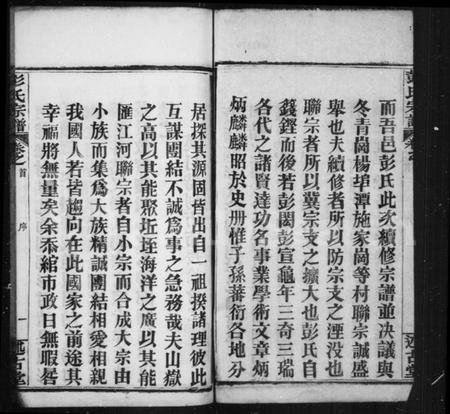 而吾邑彭氏此次續修宗譜並決議與
冬青崗楊埠潭施家崗等村聯宗誠盛
舉也夫續修者所以防宗支之湮没也
聯宗者所以冀宗支之擴大也彭氏自
籛鏗而後若彭閎彭宣龜年三奇三瑞
各代之諸賢達功名事業學術文章炳
炳麟麟昭於史册惟子孫蕃衍各地分
述古堂
居探其源固皆出自一祖揆諸理彼此
互謀團結不誠爲事之急務哉夫山嶽
之高以其能聚坵垤海洋之廣以其能
匯江河聯宗者自小宗而合成大宗由
小族而集爲大族精誠團結相愛相親
我國人若皆趨向在此國家之前途其
幸福將無量矣余忝綰市政日無暇晷
彭氏宗譜
卷之首
序
一
述古堂